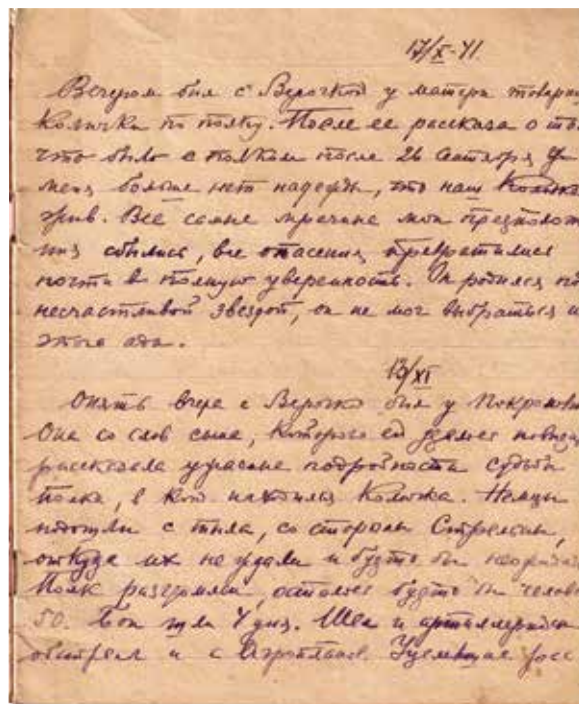 17/X-41.
Вечером был с Верочкой у матери товарищ
Колички по полку. После ее рассказа о том
что было с полком после 26 сентября у
меня больше нет надежды, что наш Количка
жив. Все самые мрачные мои предполож
ния сбылись, все опасения превратились
почти в полную уверенность. Он родился по
несчастливой звездой, он не мог выбраться и
этого ада.
13/XI
Опять вчера с Верочкой был у Покровск
Она со слов сына, которого ей удалось повид
рассказала ужасные подробности судьбы
полка, в кот находился Количка. Немцы
подошли с тыла, со стороны Стрельны,
откуда их не ждали и будто бы неожид
Полк разгромили, осталось будто бы челов
50. Бои шли 4 дня. Шел и артиллерийск
обстрел и с Аэропланов. Уцелевшие